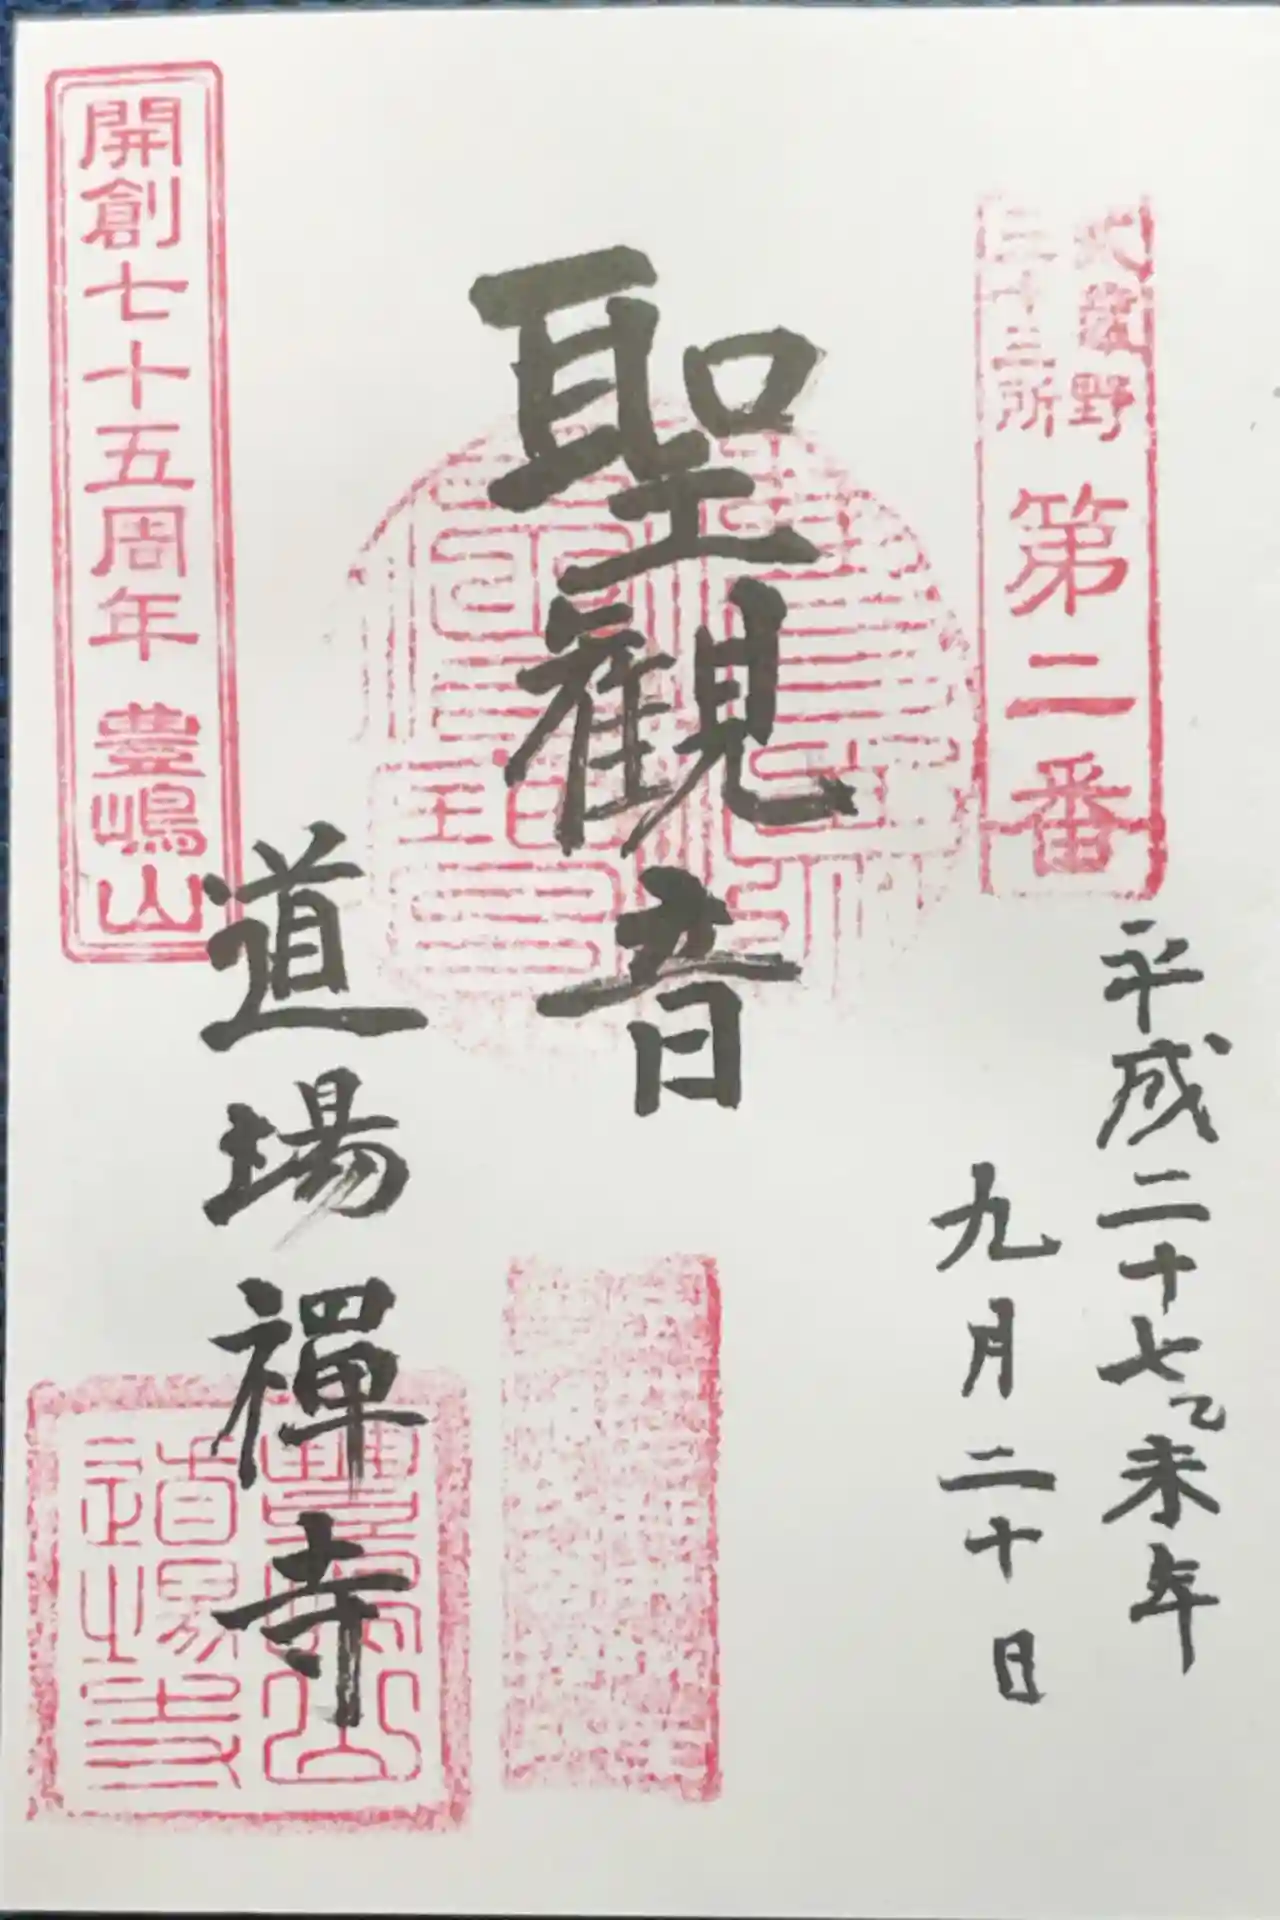 武蔵野
三十三所
第二番
平成二十七乙未年
九月二十日
聖観音
道場禅寺
開創七十五周年 豊嶋山
豊嶋山
道場寺